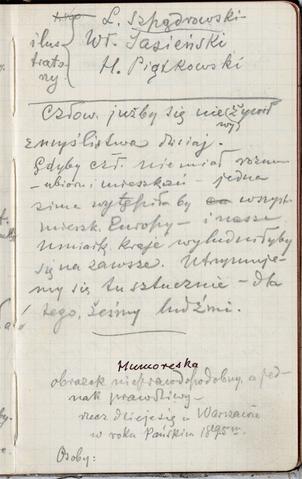 L. Szpądrowski
ilus Wł. Jasieński
trato H. Piątkowski
rzy.
Człow. jużby się nie wyżywił
z myślistwa dzisiaj.
Gdyby czł. nie miał rozumu
– ubioru i mieszkań jedna
zima wytępiłaby wszyst
mieszk. Europy – i nasze
umiark. kraje wyludniłyby
się na zawsze. Utrzymuje-
my się tu sztucznie – dla
tego, żeśmy ludźmi.
Humoreska
obrazek nieprawdopodobny a jed-
nak prawdziwy –
rzecz dzieje się w Warszawie
w roku Pańskim 18
Osoby: